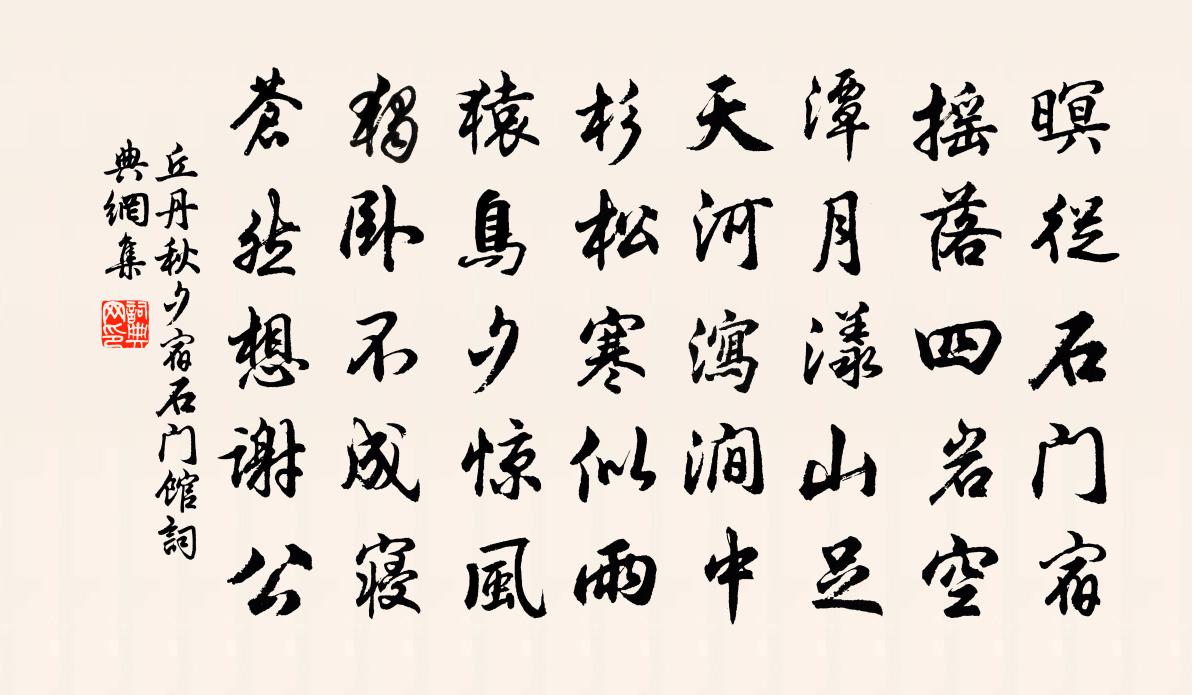 暝從石门宿
摇落四岩空
潭月漾山足
天河瀉澗中
杉松寒似雨
猿鳥夕惊風
獨卧不成寝
蒼然想謝公
丘丹秋夕宿石门馆詞
典網集
詞典
网印